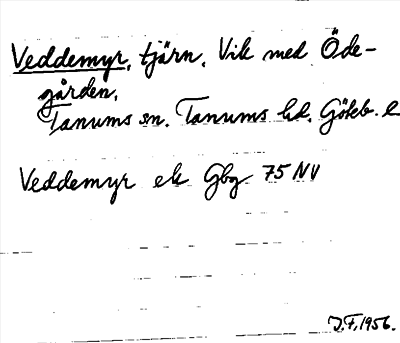 Veddemyr, tjärn, Vik med Öde-
gården,
Tanums sn. Tanums hd. Göteb. l
Veddemyr ek Gbg 75 NV
J.F. 1956.